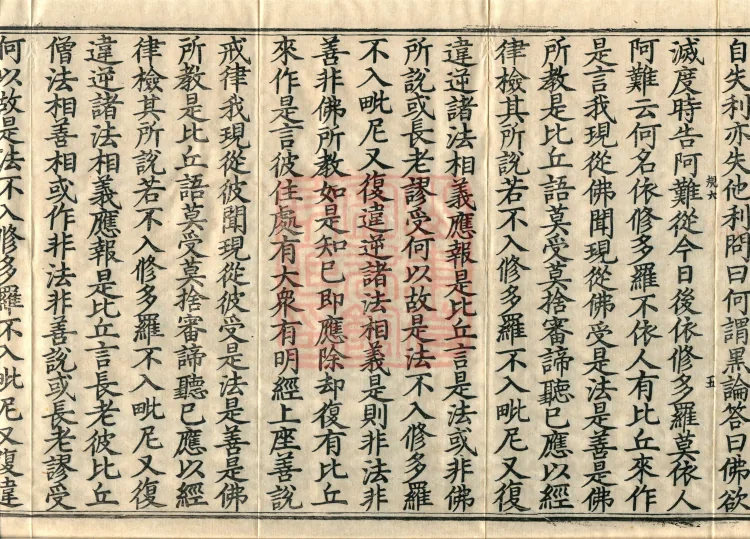 自失利亦失他利問曰何謂黑論答曰佛欲
五
滅度時告阿難從今日後依修多羅莫依人
阿難云何名依修多羅不依人有比丘來作
是言我現從佛聞現從佛受是法是善是佛
所教是比丘語莫受莫捨審諦聽已應以經
律檢其所說若不入修多羅不入毗尼又復
違逆諸法相義應報是比丘言是法或非佛
所說或長老謬受何以故是法不入修多羅
不入毗尼又復違逆諸法相義是則非法非
善非佛所教如是知已即應除却復有比丘
來作是言彼住處有大衆有明經上座善說
戒律我現從彼聞現從彼受是法是善是佛
所教是比丘語莫受莫捨審諦聽已應以經
律檢其所說若不入修多羅不入毗尼又復
違逆諸法相義應報是比丘言長老彼比丘
僧法相善相或作非法非善說或長老謬受
何以故是法不入修多羅不入毗尼又復違